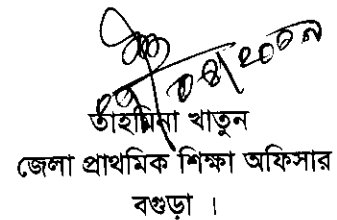 তাহমিনা খাতুন
জেলা প্রাথমিক শিক্ষা অফিসার
বগুড়া ।